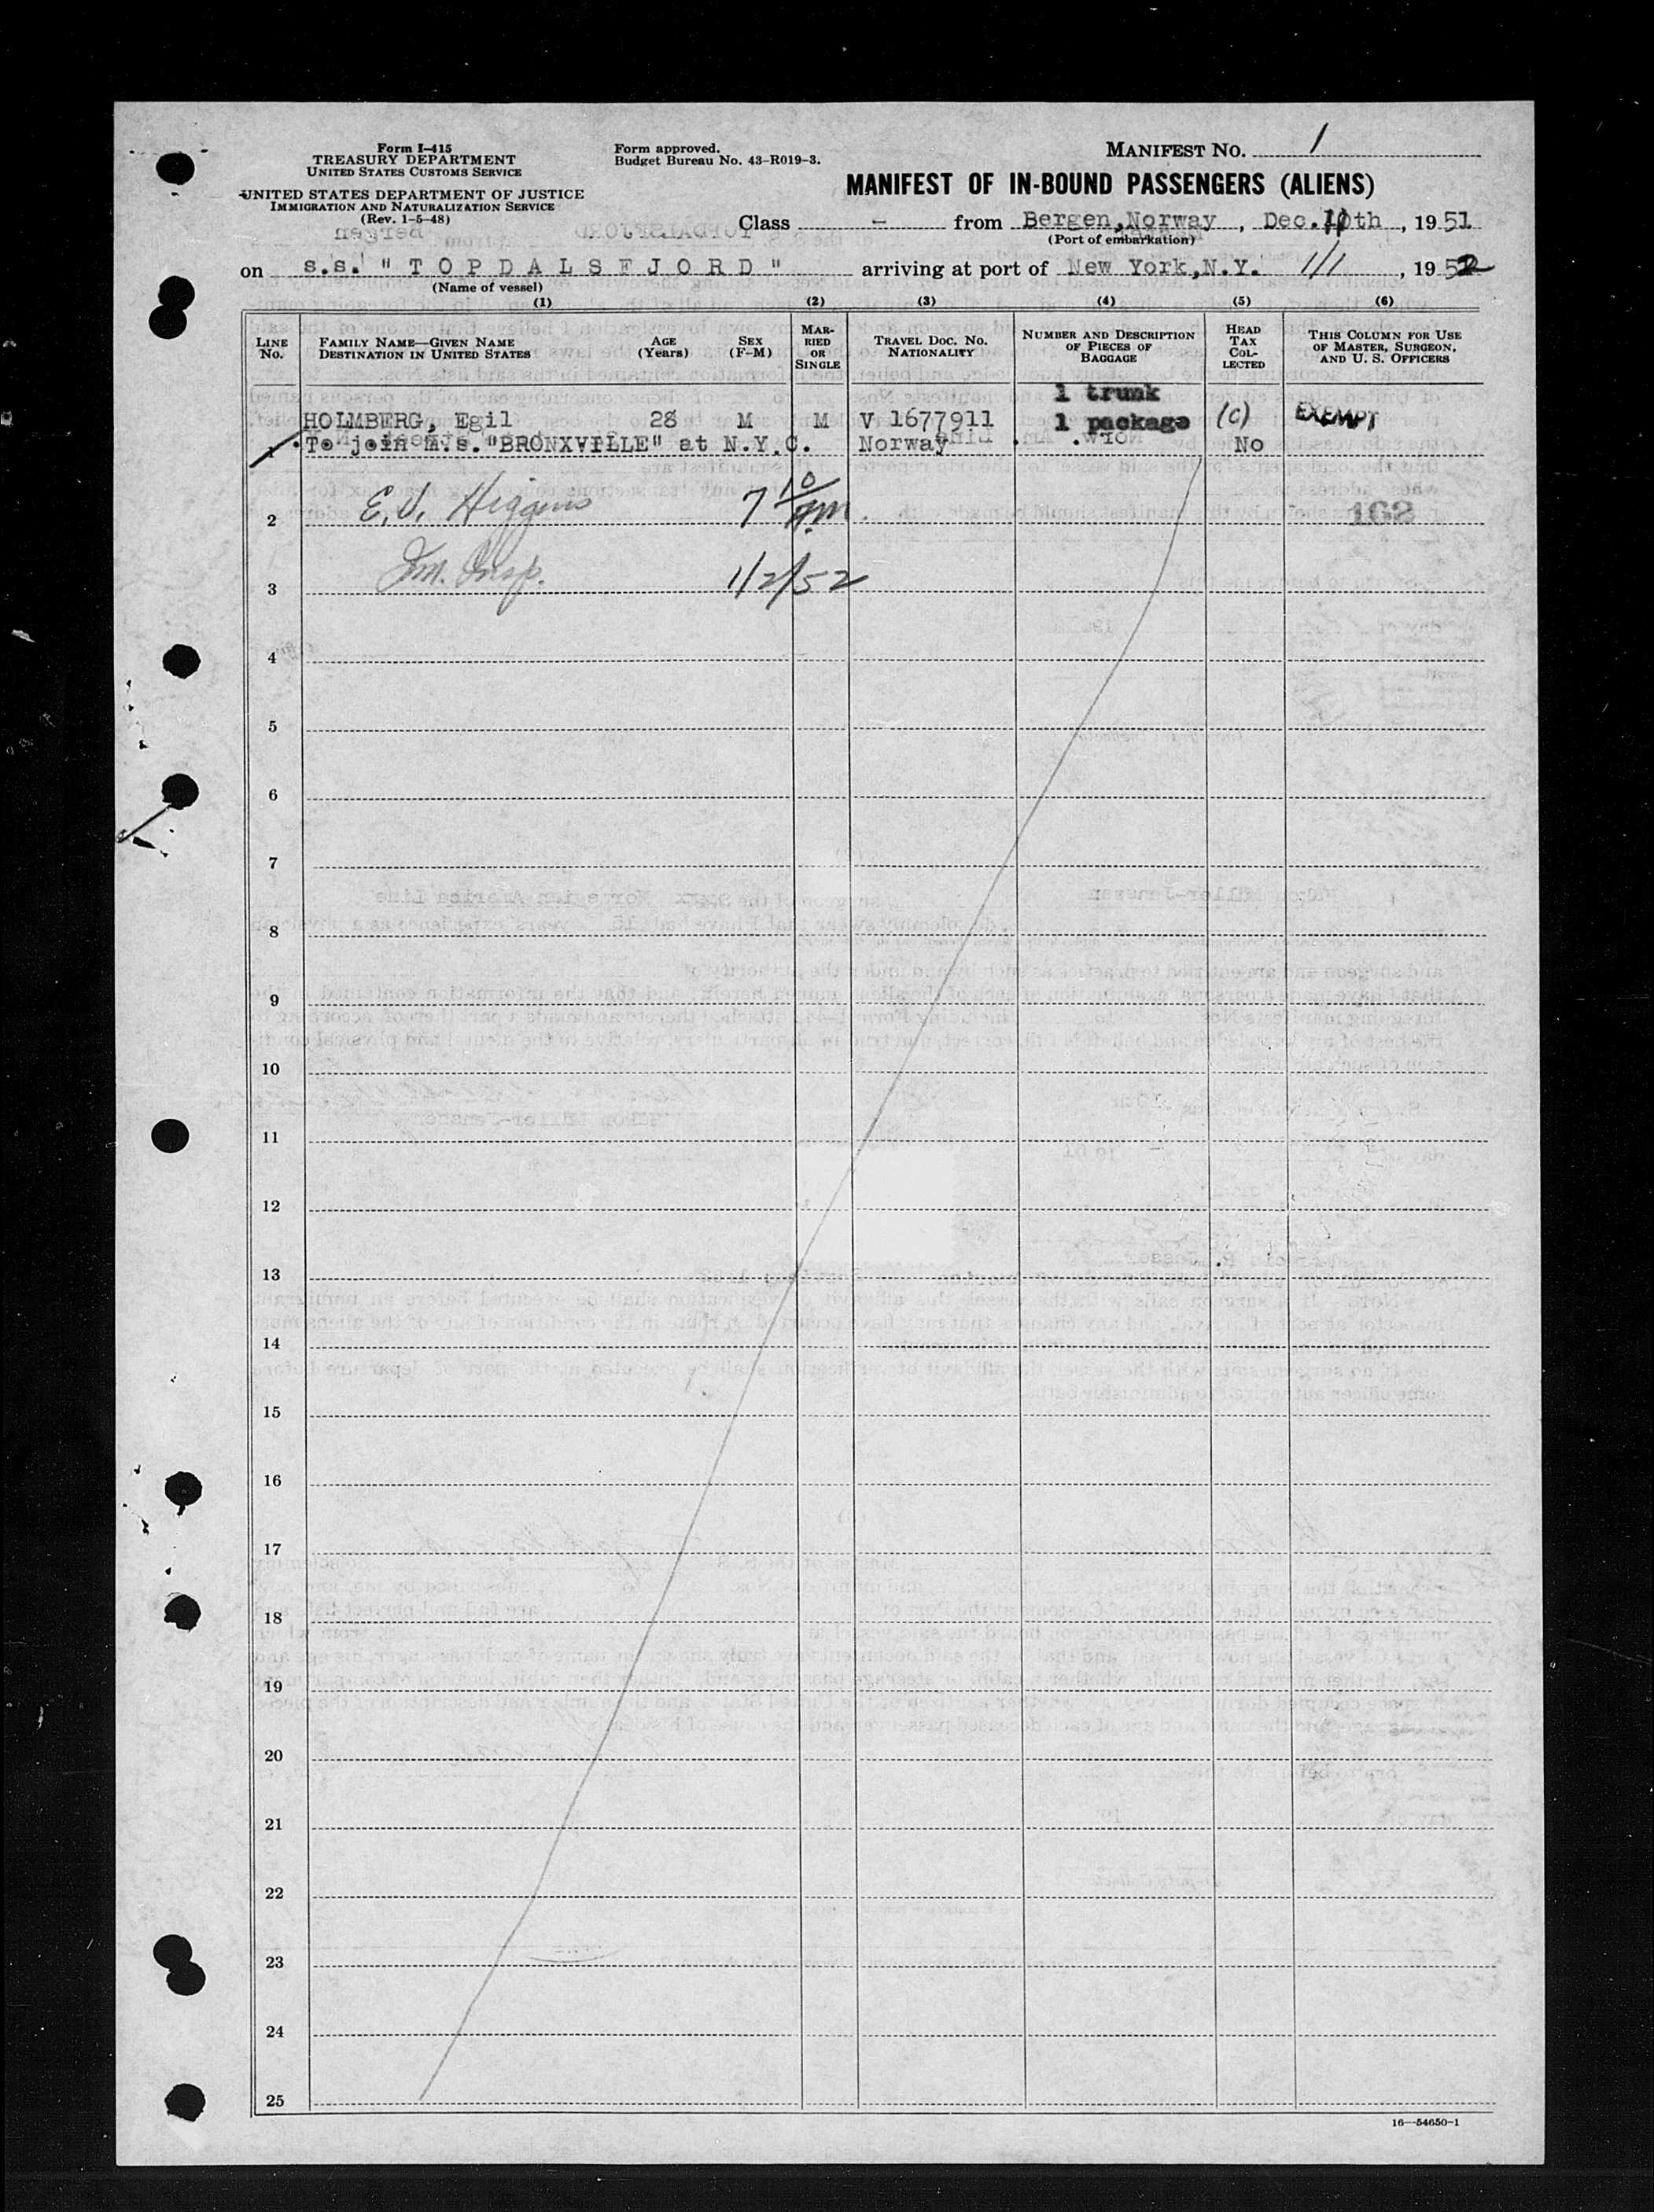 Form I-415
TREASURY DEPARTMENT
UNITED STATES CUSTOMS SERVICE
UNITED STATES DEPARTMENT OF JUSTICE
IMMIGRATION AND NATURALIZATION SERVICE
(Rev. 1-5-48)
Form approved.
Budget Bureau No. 43-R019-3.
MANIFEST NO. 1
MANIFEST OF IN-BOUND PASSENGERS (ALIENS)
Class - from Bergen, Norway, Dec. th, 1951
(Port of embarkation)
on s.s. "TOPDALSFJORD" arriving at port of New York, N.Y. 1/1, 1952
(Name of vessel)
(1) (2) (3) (4) (5) (6)
LINE NO.
FAMILY NAME—GIVEN NAME
DESTINATION IN UNITED STATES
AGE (Years)
SEX (F-M)
MARRIED OR SINGLE
TRAVEL DOC. NO.
NATIONALITY
NUMBER AND DESCRIPTION OF PIECES OF BAGGAGE
HEAD TAX COLLECTED
THIS COLUMN FOR USE OF MASTER, SURGEON, AND U. S. OFFICERS
1 trunk
HOLMBERG, Egil 28 M M V 1677911 1 package (c) EXEMPT
1 To join m.s. "BRONXVILLE" at N.Y.C. Norway No
2 E.J. Higgins 7 10/AM 168
3 Im. Insp. 1/2/52
4
5
6
7
8
9
10
11
12
13
14
15
16
17
18
19
20
21
22
23
24
25
16—54650-1